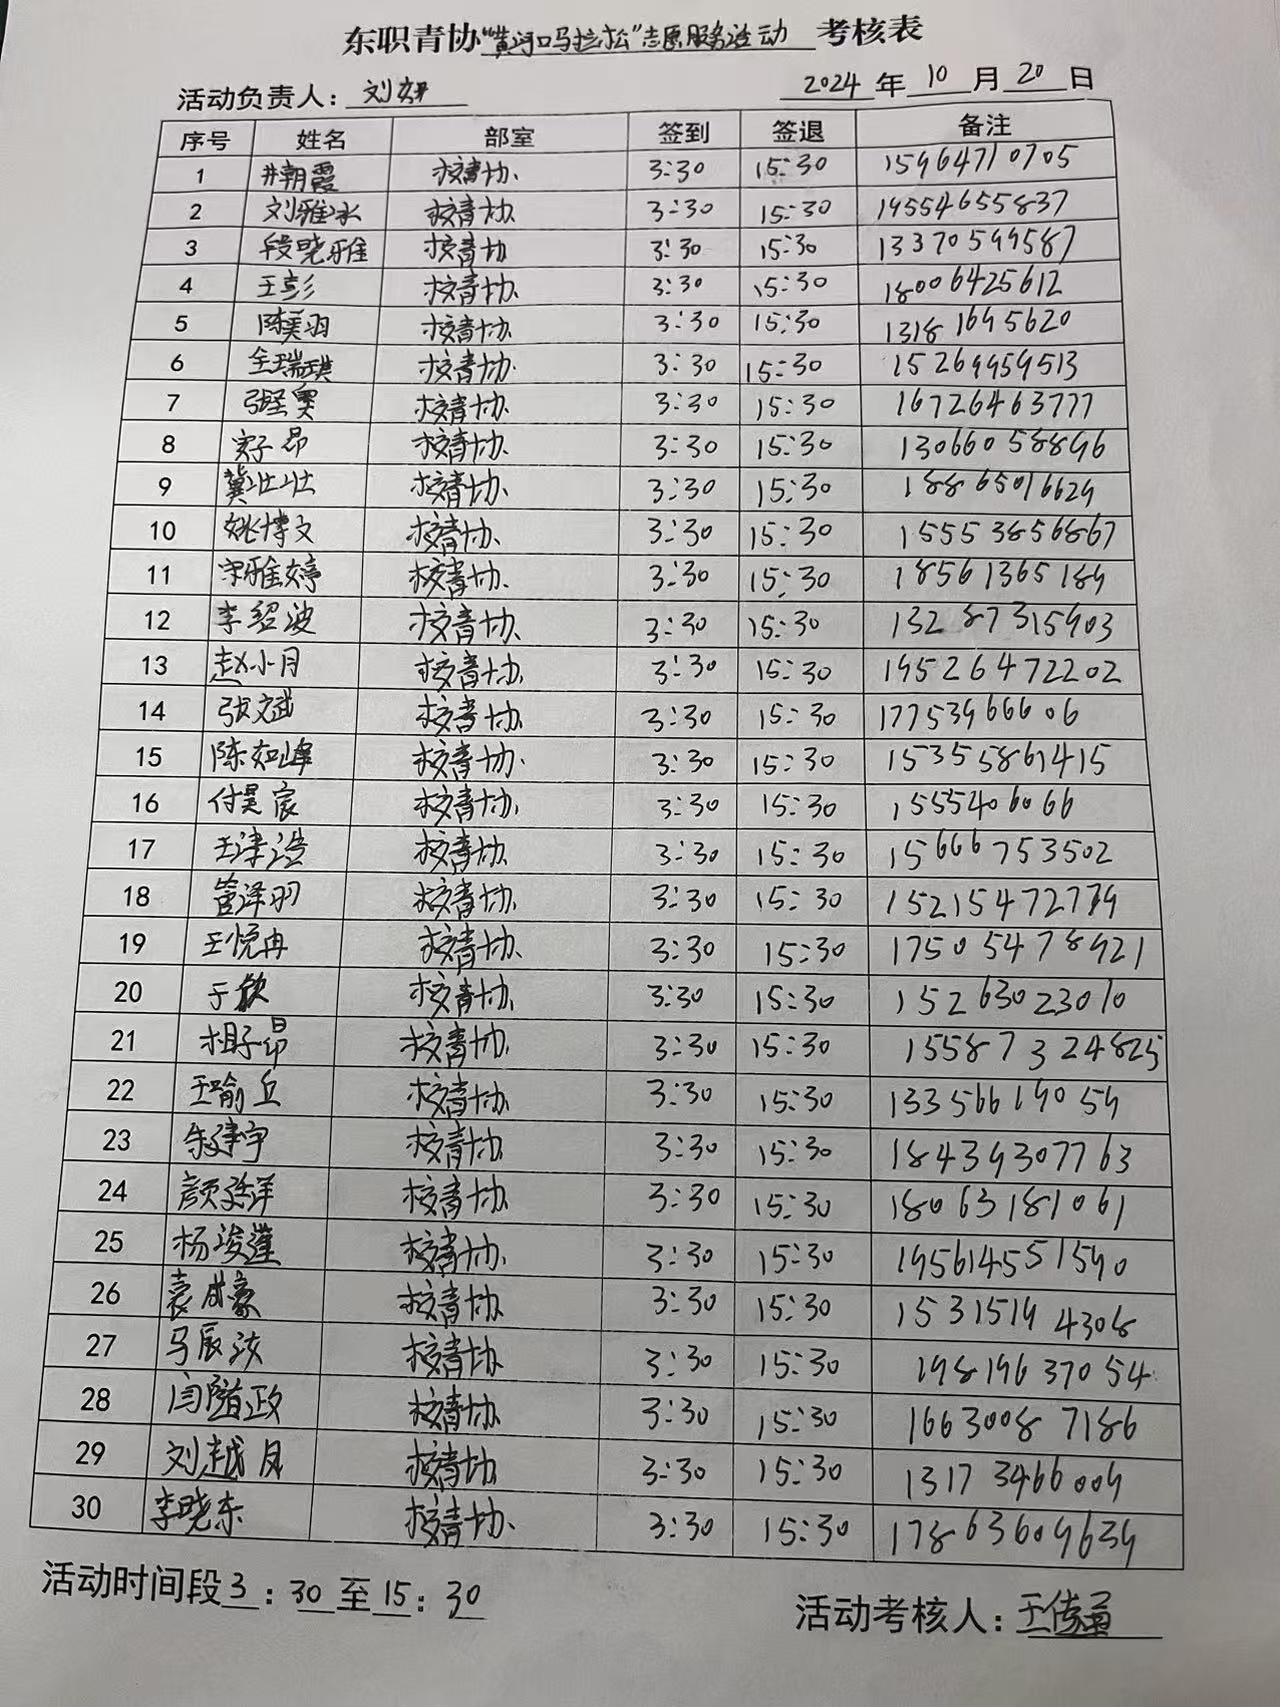 东职青协“黄河口马拉松”志愿服务活动 考核表
活动负责人：刘妍 2024 年 10 月 20 日
序号 姓名 部室 签到 签退 备注
1 井朝霞 校青协 3:30 15:30 15964710705
2 刘雅冰 校青协 3:30 15:30 19554655837
3 段晓雅 校青协 3:30 15:30 13370599587
4 王彭 校青协 3:30 15:30 18006425612
5 陈美羽 校青协 3:30 15:30 13181695620
6 全瑞琪 校青协 3:30 15:30 15269959513
7 校青协 3:30 15:30 16726463777
8 校青协 3:30 15:30 13066058896
9 冀壮壮 校青协 3:30 15:30 18865016629
10 姚博文 校青协 3:30 15:30 15553856867
11 宋雅婷 校青协 3:30 15:30 18561365189
12 李绍波 校青协 3:30 15:30 13287315903
13 赵小月 校青协 3:30 15:30 19526472202
14 张文斌 校青协 3:30 15:30 17753966606
15 陈如峰 校青协 3:30 15:30 15355861415
16 付昊宸 校青协 3:30 15:30 1555406066
17 王津浩 校青协 3:30 15:30 15666753502
18 管泽羽 校青协 3:30 15:30 15215472779
19 王悦冉 校青协 3:30 15:30 17505478921
20 于欽 校青协 3:30 15:30 15263023010
21 相子昂 校青协 3:30 15:30 15587324825
22 王喻丘 校青协 3:30 15:30 13356619059
23 朱建宇 校青协 3:30 15:30 18439307763
24 颜廷洋 校青协 3:30 15:30 18063181061
25 杨浚瑾 校青协 3:30 15:30 195614551590
26 袁成豪 校青协 3:30 15:30 15315194308
27 马辰汝 校青协 3:30 15:30 19819637054
28 闫随政 校青协 3:30 15:30 16630087186
29 刘越月 校青协 3:30 15:30 13173466009
30 李晓东 校青协 3:30 15:30 17863609639
活动时间段 3：30 至 15：30
活动考核人：王传